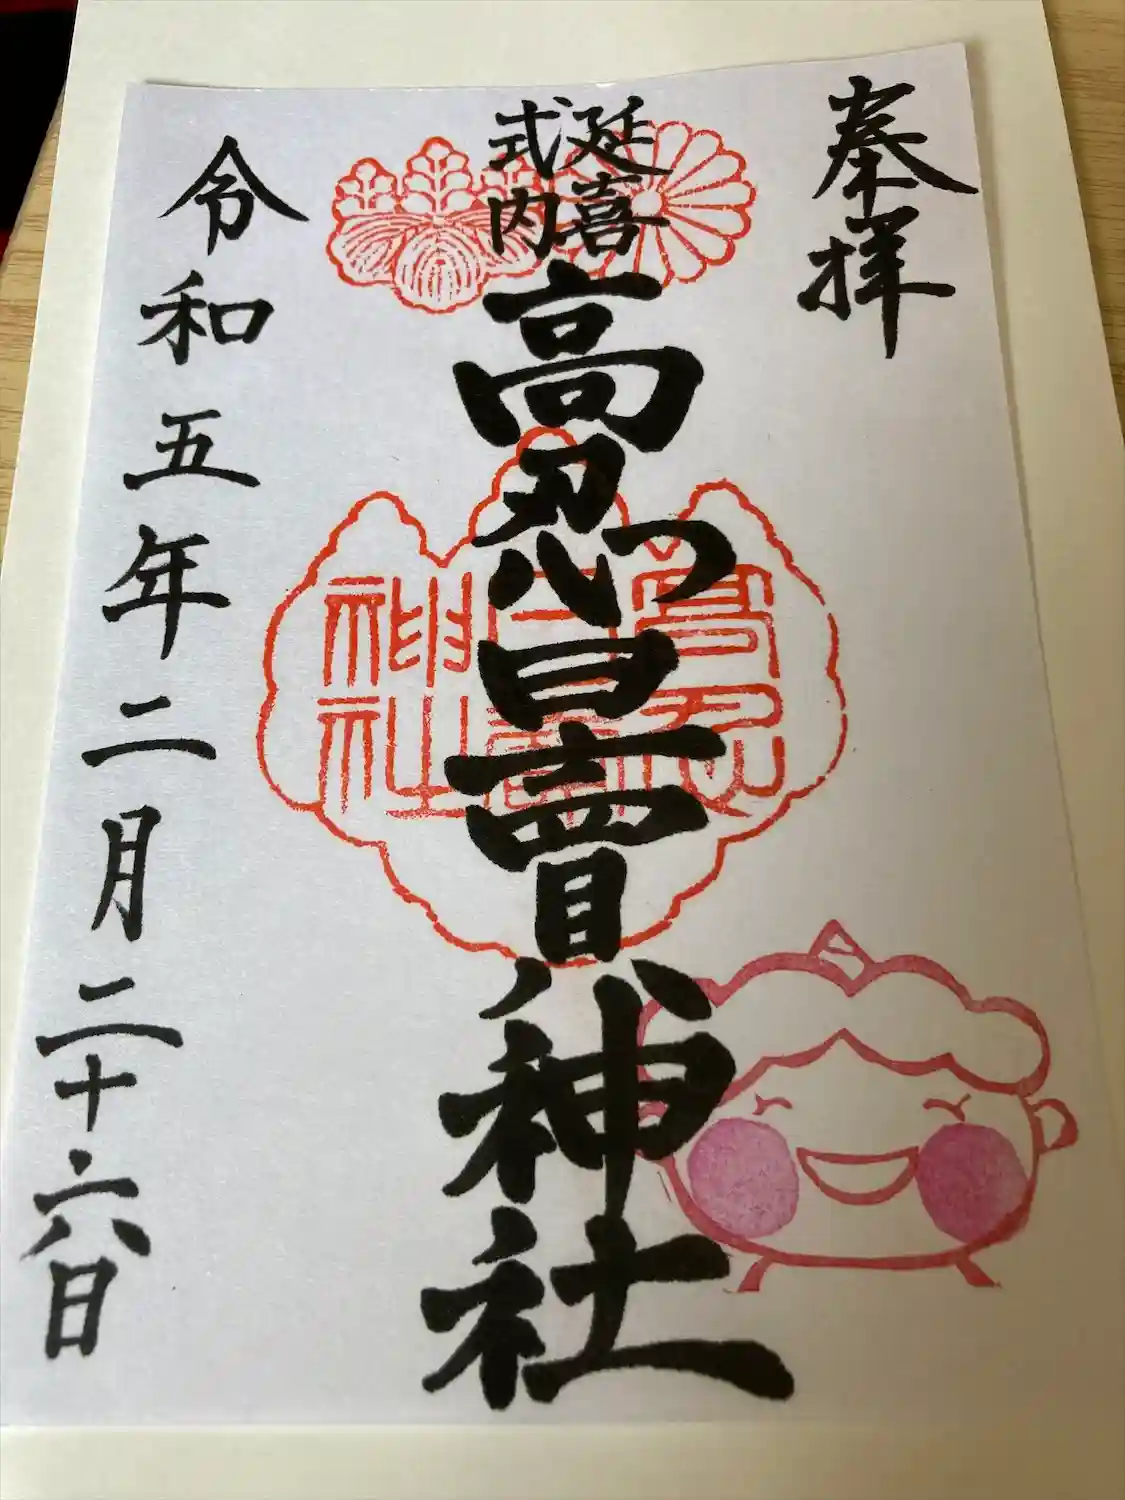 奉拝
延喜
式内
高忍日賣神社
高忍
日賣
神社
令和五年二月二十六日